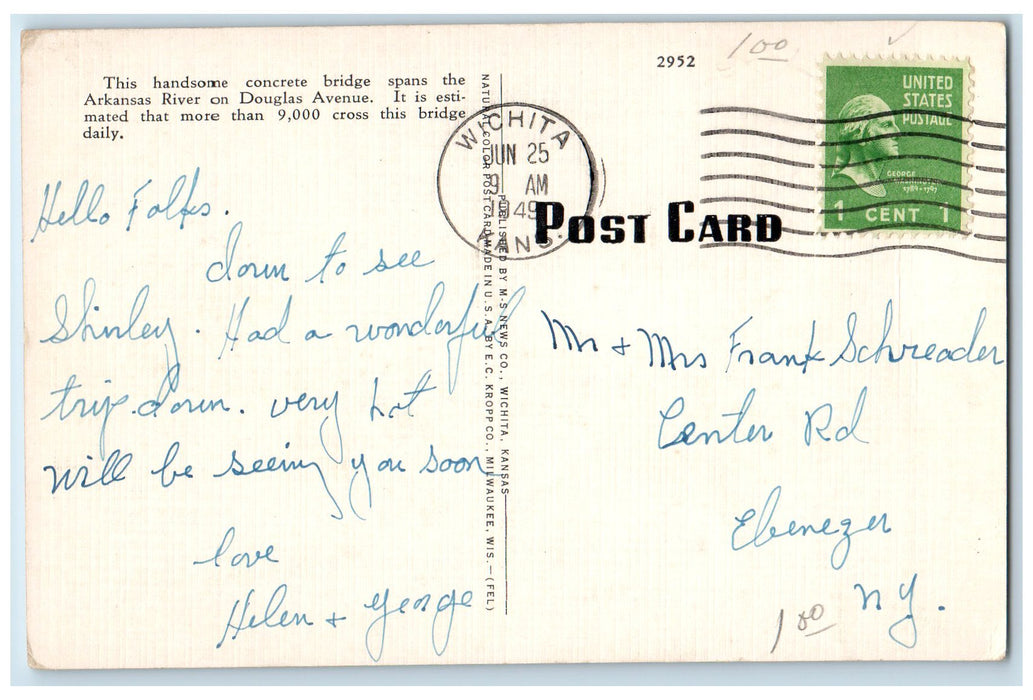 This handsome concrete bridge spans the
Arkansas River on Douglas Avenue. It is esti-
mated that more than 9,000 cross this bridge
daily.
Hello Folks.
down to see
Shirley. Had a wonderful
trip down. very hot
will be seeing you soon
love
Helen + George
NATURAL COLOR POST CARD MADE IN U.S.A. BY E.C. KROPP CO., MILWAUKEE, WIS.—(FEL)
PUBLISHED BY M-S NEWS CO., WICHITA, KANSAS
WICHITA
JUN 25
9 AM
1949
KANS.
2952
1.00
POST CARD
UNITED
STATES
POSTAGE
GEORGE
WASHINGTON
1789-1797
1 CENT 1
Mr + Mrs Frank Schreader
Center Rd
Ebenezer
N Y.
1.00